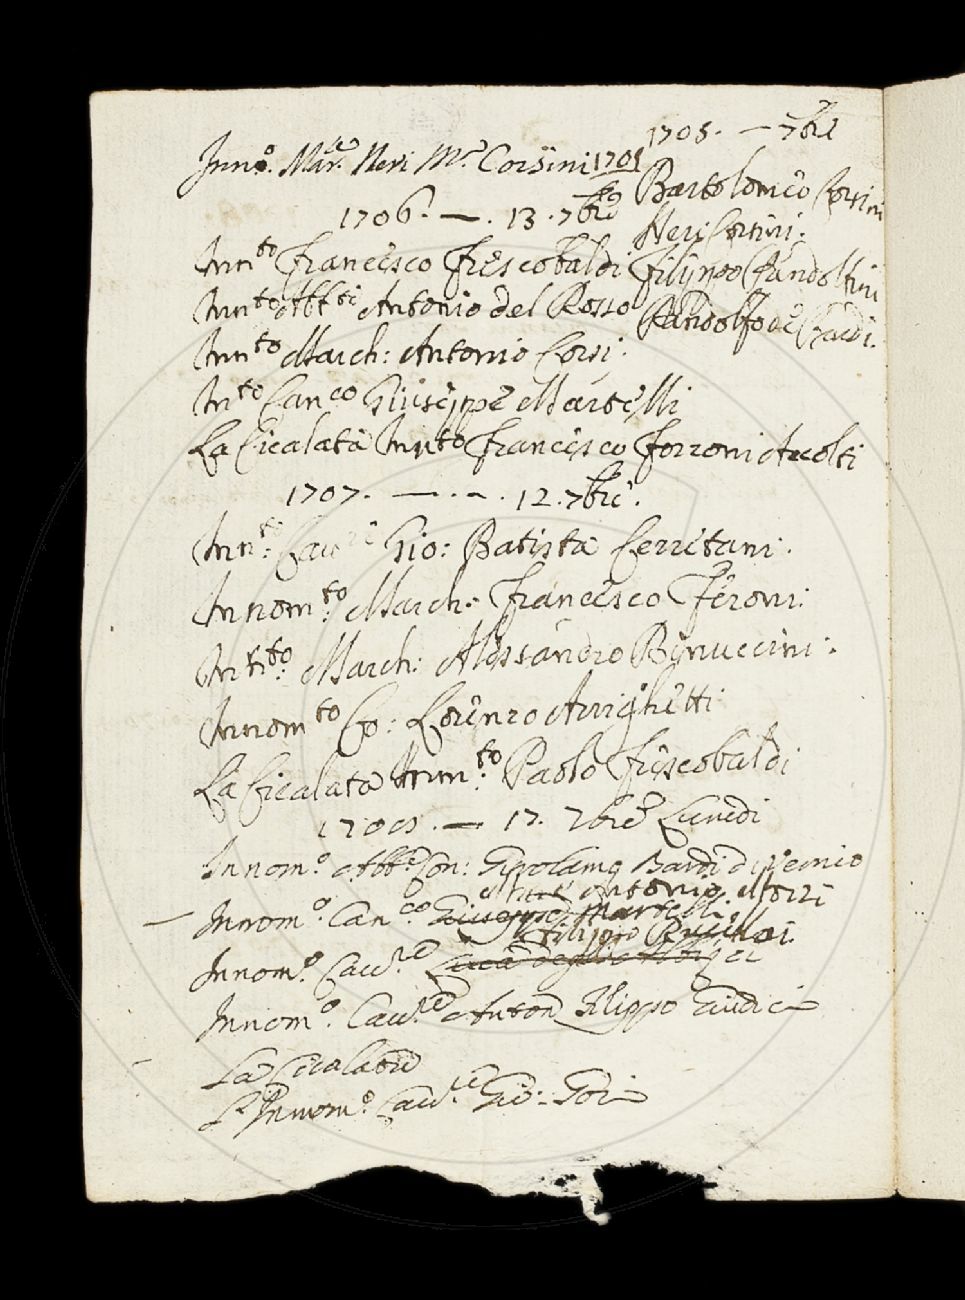 Inno.º Mar.se Neri M.a Corsini 1705
1705. — 7bre
Bartolomeo Corsini
Neri Corsini.
Filippo Pandolfini
Pandolfo de Bardi.
1706. — . 13. 7bre
Inn.to Francesco Frescobaldi
Inn.to Abb.te Antonio del Rosso
Inn.to March: Antonio Corsi.
In.to Can.co Giuseppe Martelli
La Cicalata Inn.to Francesco Forzoni Accolti
1707. — . - . 12. 7bre.
Inn.to Cav.re Gio: Batista Cerretani.
Innom.to March: Francesco Feroni.
Inn.to March: Alessandro Rinuccini.
Innom.to Co: Lorenzo Arrighetti
La Cicalata Inn.to Paolo Frescobaldi
— 17. 7bre Lunedi
Innom.º Abb.e Con: Girolamo Bardi di Vernio
Antonio
Innom.º Can.co Giuseppe Martelli
Filippo
Innom.º Cav.re
Innom.º Cav.re Anton Filippo Giudici
La Cicalata
L'Innom.º Cav.re Gio: